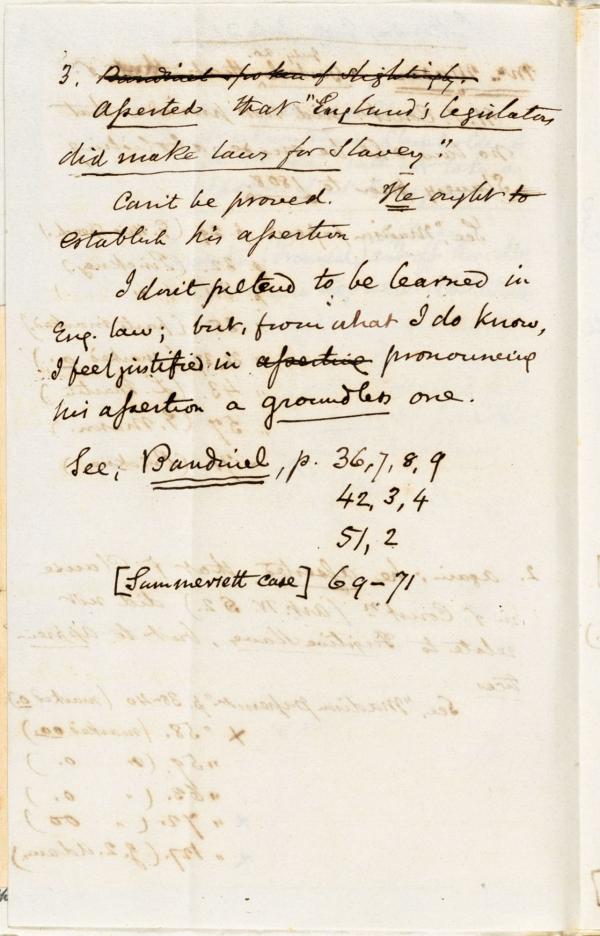 3. Bandinel spoken of slightingly.
Asserted that "England's legislators
did make laws for Slavery."
Can't be proved. He ought to
establish his assertion
I don't pretend to be learned in
Eng. law; but, from what I do know,
I feel justified in asserting pronouncing
his assertion a groundless one.
See, Bandinel, p. 36,7,8,9
42,3,4
51,2
[Summersett case] 69-71